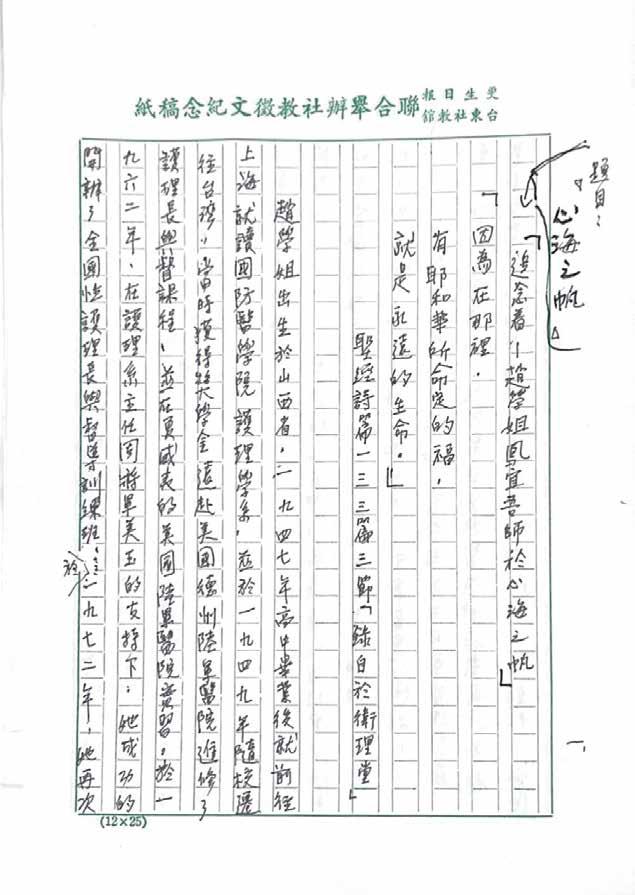 更生日報
台東社教館
聯合舉辦社教徵文紀念稿紙
題目：
『心海之帆』
「追念着—趙學姐鳳宜吾師於心海之帆」
「因為在那裡，
有耶和華所命定的福，
就是永遠的生命。」
聖經詩篇一三三篇三節「錄自於衛理堂」
趙學姐出生於山西省，一九四七年高中畢業後就前往
上海就讀國防醫學院護理學系，並於一九四九年隨校遷
往台灣，當時獲得獎學金遠赴美國德州陸軍醫院進修了
護理長與督課程，並在夏威夷的美國陸軍醫院實習。於一
九六二年，在護理系主任周將軍美玉的支持下，她成功的
開辦了全國性護理長與督導訓練班；於一九七二年，她再次
一、
(12×25)